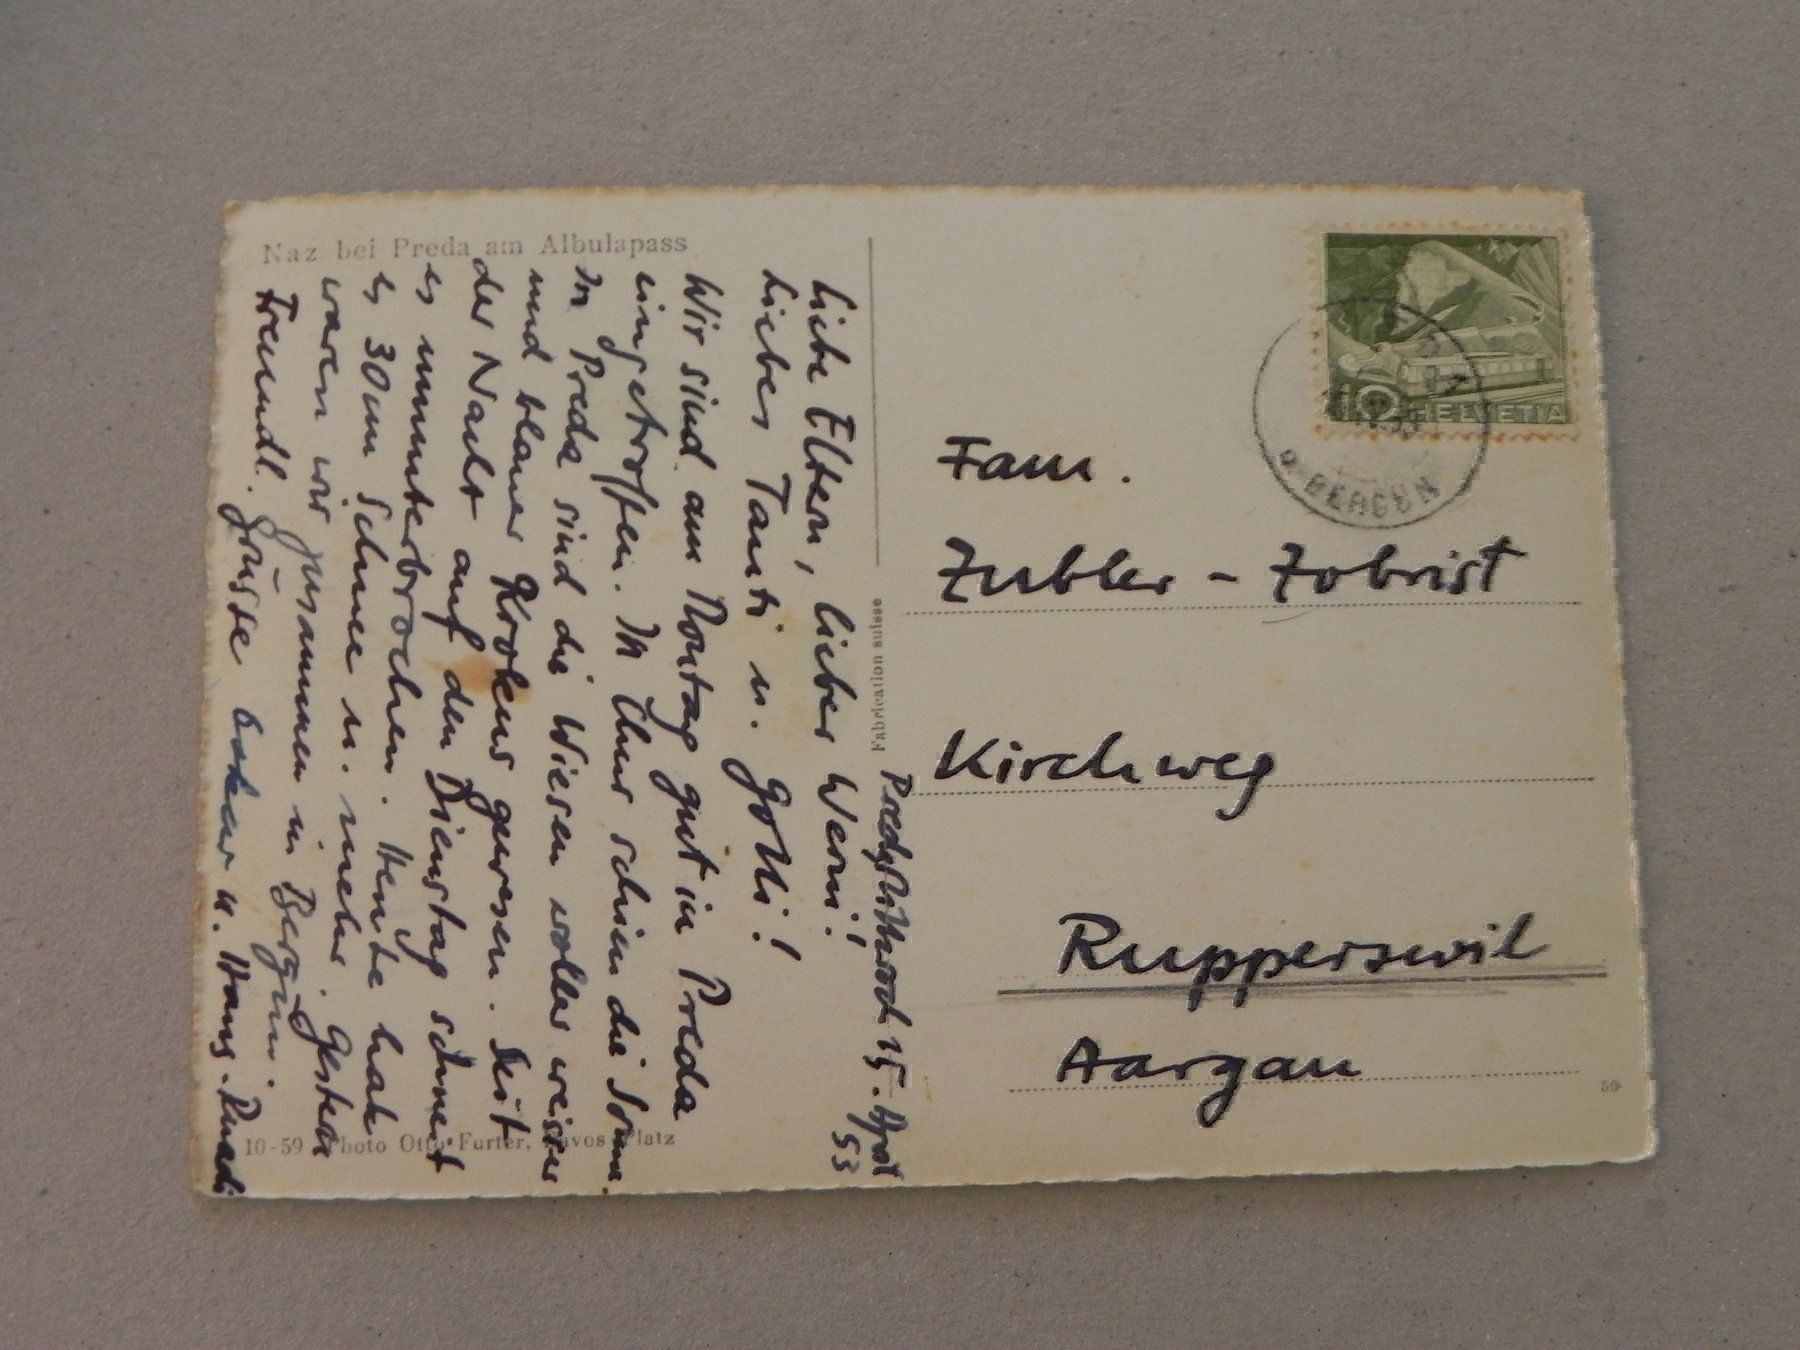 Naz bei Preda am Albulapass
Preda, Mittwoch 15. April
53
Liebe Eltern, lieber Werni!
Liebes Tanti u. Gotti!
Wir sind am Montag gut in Preda
eingetroffen. In Chur schien die Sonne.
In Preda sind die Wiesen voller weisser
und blauer Krokus gewesen. Seit
der Nacht auf den Dienstag schneit
es ununterbrochen. Heute hat
es 30 cm Schnee u. mehr. Gestern
waren wir zusammen in Bergün.
Freundl. Grüsse Oskar u. Hans-Ruedi
10-59 Photo Otto Furter, Davos-Platz
Fabrication suisse
10 HELVETIA
BERGÜN
Fam.
Zubler - Zobrist
Kirchweg
Rupperswil
Aargau